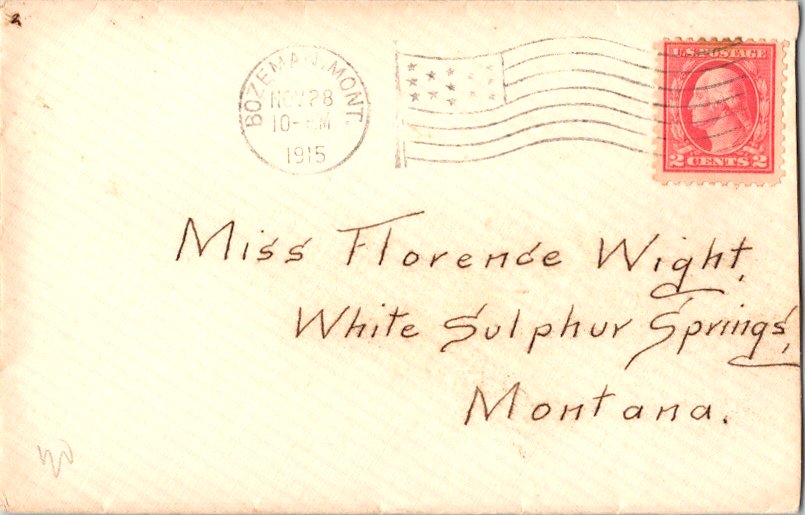 BOZEMAN, MONT.
NOV 28
1915
U.S. POSTAGE
2 CENTS 2
Miss Florence Wight,
White Sulphur Springs,
Montana.